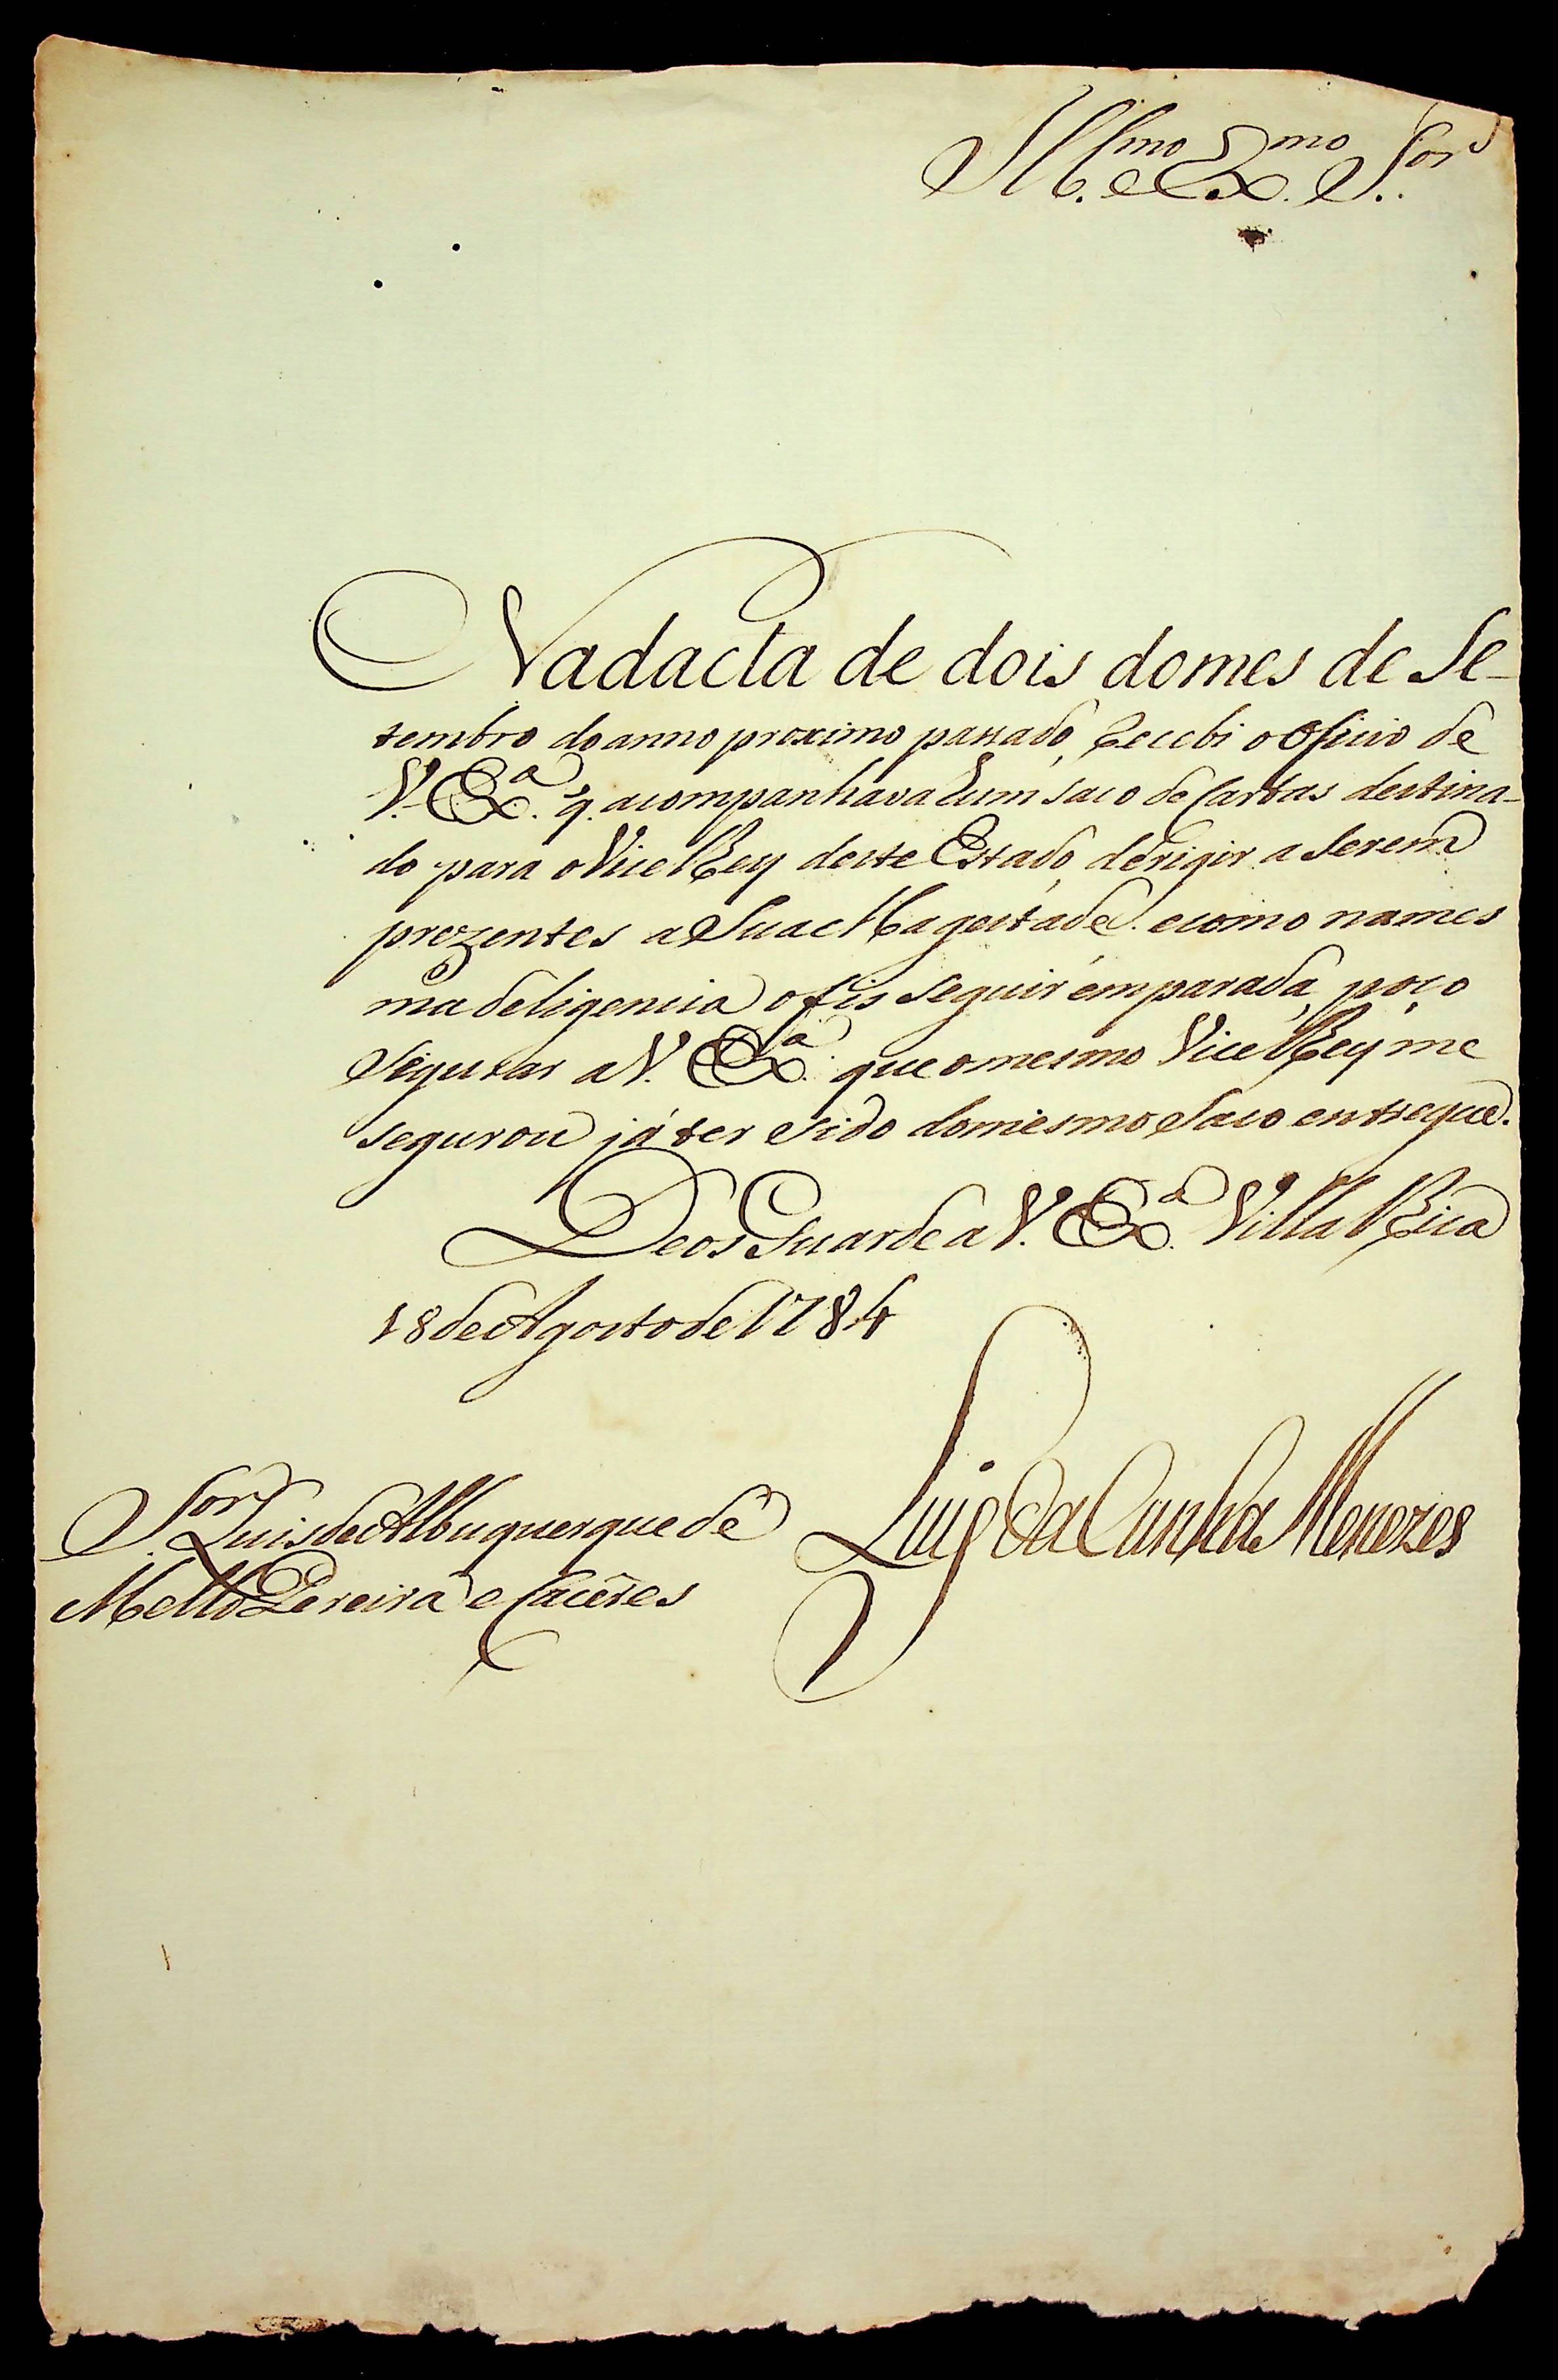 Ill.mo e Ex.mo S.or
Na dacta de dois do mes de Se-
tembro do anno proximo passado, Recebi o Oficio de
V. Ex.a q. acompanhava hum saco de Cartas destina-
do para o Vice Rey deste Estado, derigir a serem
prezentes a Sua Magestade. e como na mes
ma deligencia o fis seguir em parada, poço
segurar a V. Ex.a que o mesmo Vice Rey me
segurou já ter sido do mesmo Saco entregue.
Deos Guarde a V. Ex.a Villa Rica
18 de Agosto de 1784
Luis da Cunha Menezes
S.or Luis de Albuquerque de
Mello Pereira e Caceres